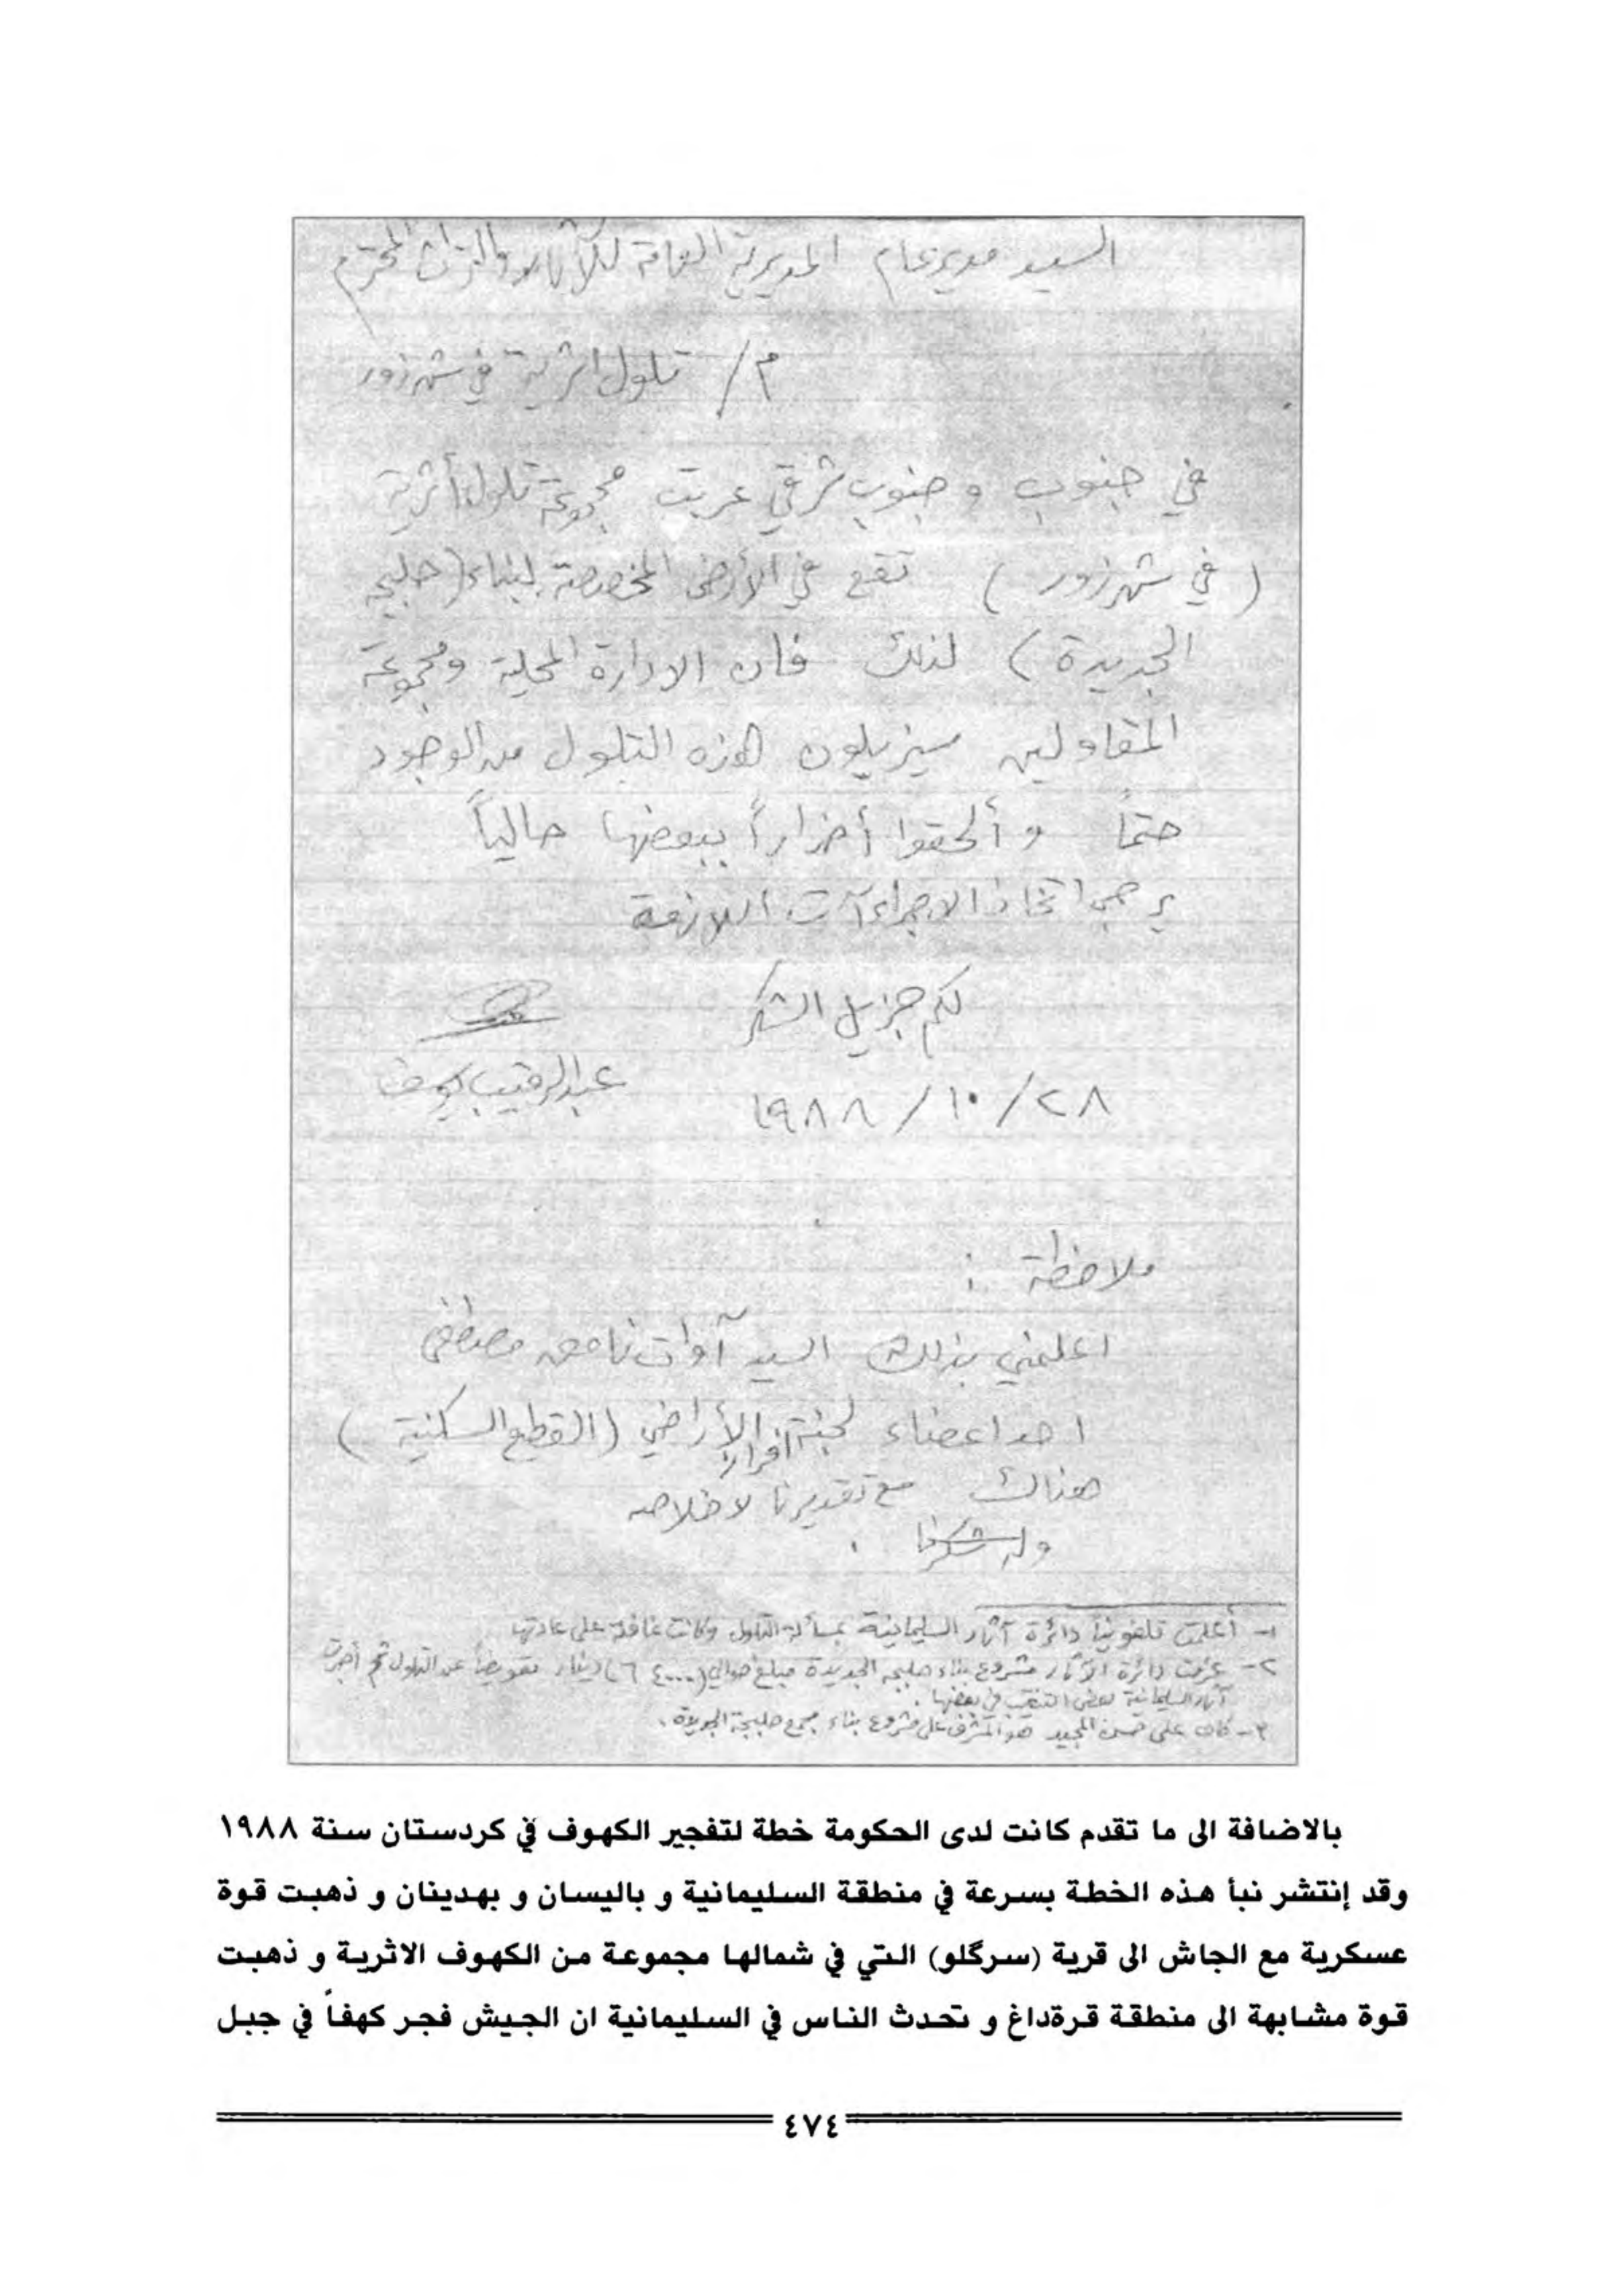 السيد مدير عام المديرية العامة للآثار والتراث المحترم
م/ تلول اثرية في شهرزور
في جنوب و جنوب شرقي عربت مجموعة تلول أثرية
(في شهرزور) تقع في الأرض المخصصة لبناء (حلبجه
الجديدة) لذلك فان الادارة المحلية ومجموعة
المقاولين سيزيلون هذه التلول من الوجود
حتماً و ألحقوا أضراراً ببعضها حالياً
يرجى اتخاذ الاجراءآت اللازمة
لكم جزيل الشكر
عبدالرقيب يوسف
٢٨/١٠/١٩٨٨
ملاحظة :
اعلمني بذلك السيد آوات نامق مصطفى
احد اعضاء لجنة افراز الأراضي (القطع السكنية)
هناك مع تقديرنا لاخلاصه
وله شكرنا .
١- أعلمت تلفونياً دائرة آثار السليمانية بمسألة التلول وكانت غافلة على عادتها
٢- غرمت دائرة الآثار مشروع بناء حلبجه الجديدة مبلغ حوالي (٦٤٠٠٠) دينار تعويضاً عن التلول ثم أجرت
آثار السليمانية بعض التنقيب في بعضها .
٣- كان علي حسن المجيد هو المشرف على مشروع بناء مجمع حلبجة الجديدة .
بالاضافة الى ما تقدم كانت لدى الحكومة خطة لتفجير الكهوف في كردستان سنة ١٩٨٨
وقد إنتشر نبأ هذه الخطة بسرعة في منطقة السليمانية و باليسان و بهدينان و ذهبت قوة
عسكرية مع الجاش الى قرية (سرگلو) التي في شمالها مجموعة من الكهوف الاثرية و ذهبت
قوة مشابهة الى منطقة قرةداغ و تحدث الناس في السليمانية ان الجيش فجر كهفاً في جبل
٤٧٤